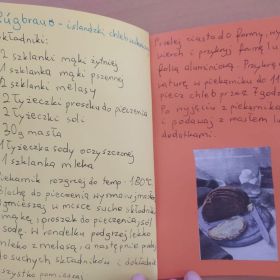 Rúgbrauð - islandzki chleb
składniki:
2 szklanki mąki żytniej
1 szklanka mąki pszennej
2 szklanki melasy
2 łyżeczki proszku do pieczenia
2 łyżeczki soli
30g masła
1 łyżeczka sody oczyszczonej
1 szklanka mleka
Piekarnik rozgrzej do temp. 180°C
Blachę do pieczenia wysmaruj masłem
Wymieszaj w misce suche składniki
mąkę, proszek do pieczenia, sól
sodę. W rondelku podgrzej lekko
mleko z melasą, a następnie
do suchych składników i dokładnie
wszystko
Przelej ciasto do formy,
wierzch i przykryj formę lub
folią aluminiową.
piekarniku do 11
piecz chleb przez 7 godzin
Po wyjęciu z piekarnika
i podawaj z masłem lub
dodatkami.